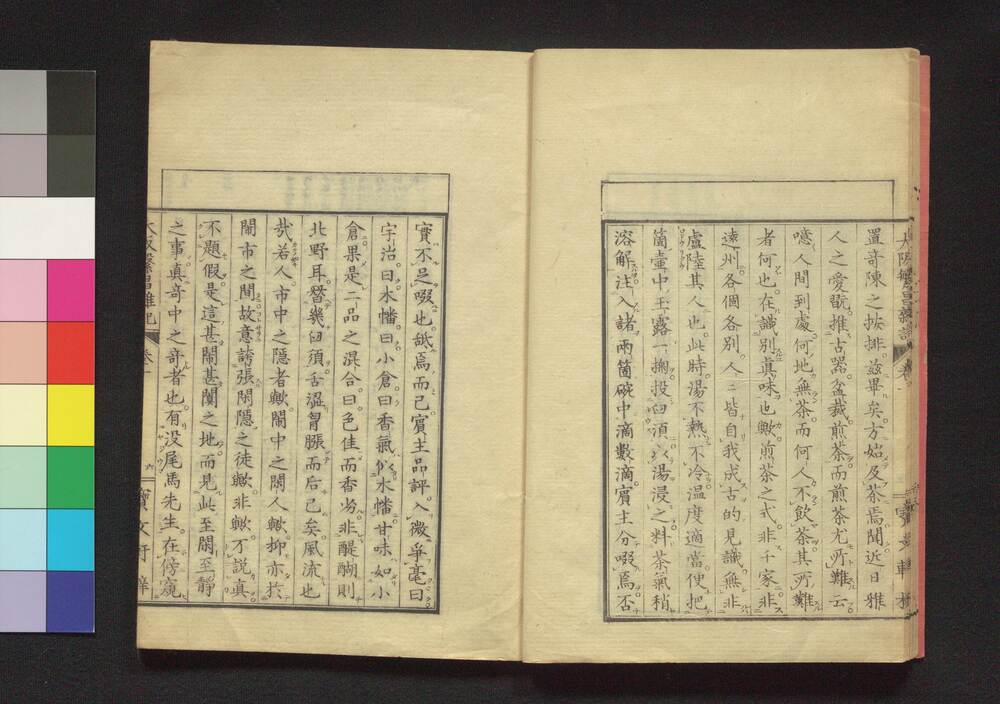 置奇陳之按排。茲畢矣。方始及茶焉。聞近日雅
人之愛翫。推古器盆栽煎茶。而煎茶尤所難云
噫人間到處。何地無茶。而何人不飲茶。其所難
者何也。在識別真味也歟。煎茶之式。非千家。非
遠州各個各別。人々皆自我成古的見識。無非
盧陸其人也。此時湯不熱不冷温度適當。便把
箇壷中玉露一掬投臼湏以湯浸之料茶氣稍
溶解。注入諸兩箇碗中滴數滴。賓主分啜焉。否
實不足啜也。舐焉而已。賓主品評。入微爭毫。曰
宇治。曰木幡。曰小倉。曰香氣似木幡。甘味如小
倉。果是二品之混合。曰色佳而香劣。非醍醐則
北野耳。朁幾臼須舌澀胃脹而后已矣。風流也
哉。若人市中之隱者歟。閙中之閑人歟。抑亦於
閙市之間。故意誇張閑隱之徒歟。非歟。不説真
不題假。是這甚閙甚闐之地。而見此至閑至靜
之事。真奇中之奇者也。有没尾馬先生。在傍窺
大阪繁昌雜記
卷一
六
寶文軒梓